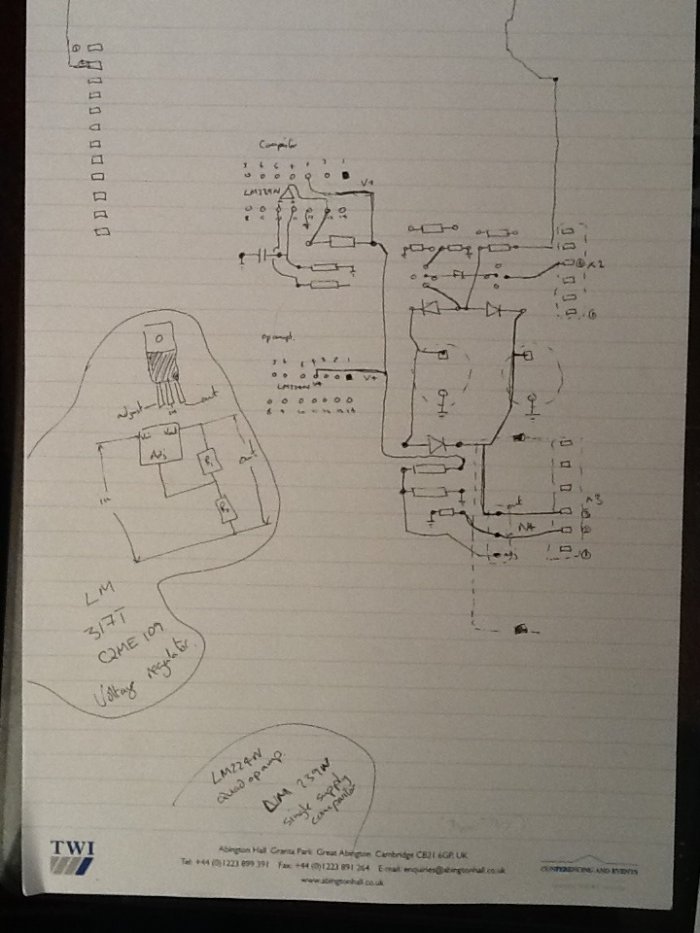 Comparitor
7 6 5 4 3 2 1
LM239N
V+
X2
op ampl.
V+
LM224N
V+
adjust
out
Vin Vout
Adj
in
R1
out
R2
X3
LM
317T
C2ME 109
Voltage regulator.
LM224N
quad op amp.
LM 239N
single supply
comparitor
TWI
Abington Hall Granta Park Great Abington Cambridge CB21 6GP, UK
Tel: +44 (0)1223 899 391 Fax: +44 (0)1223 891 264 E-mail: enquiries@abingtonhall.co.uk
www.abingtonhall.co.uk
CONFERENCING AND EVENTS